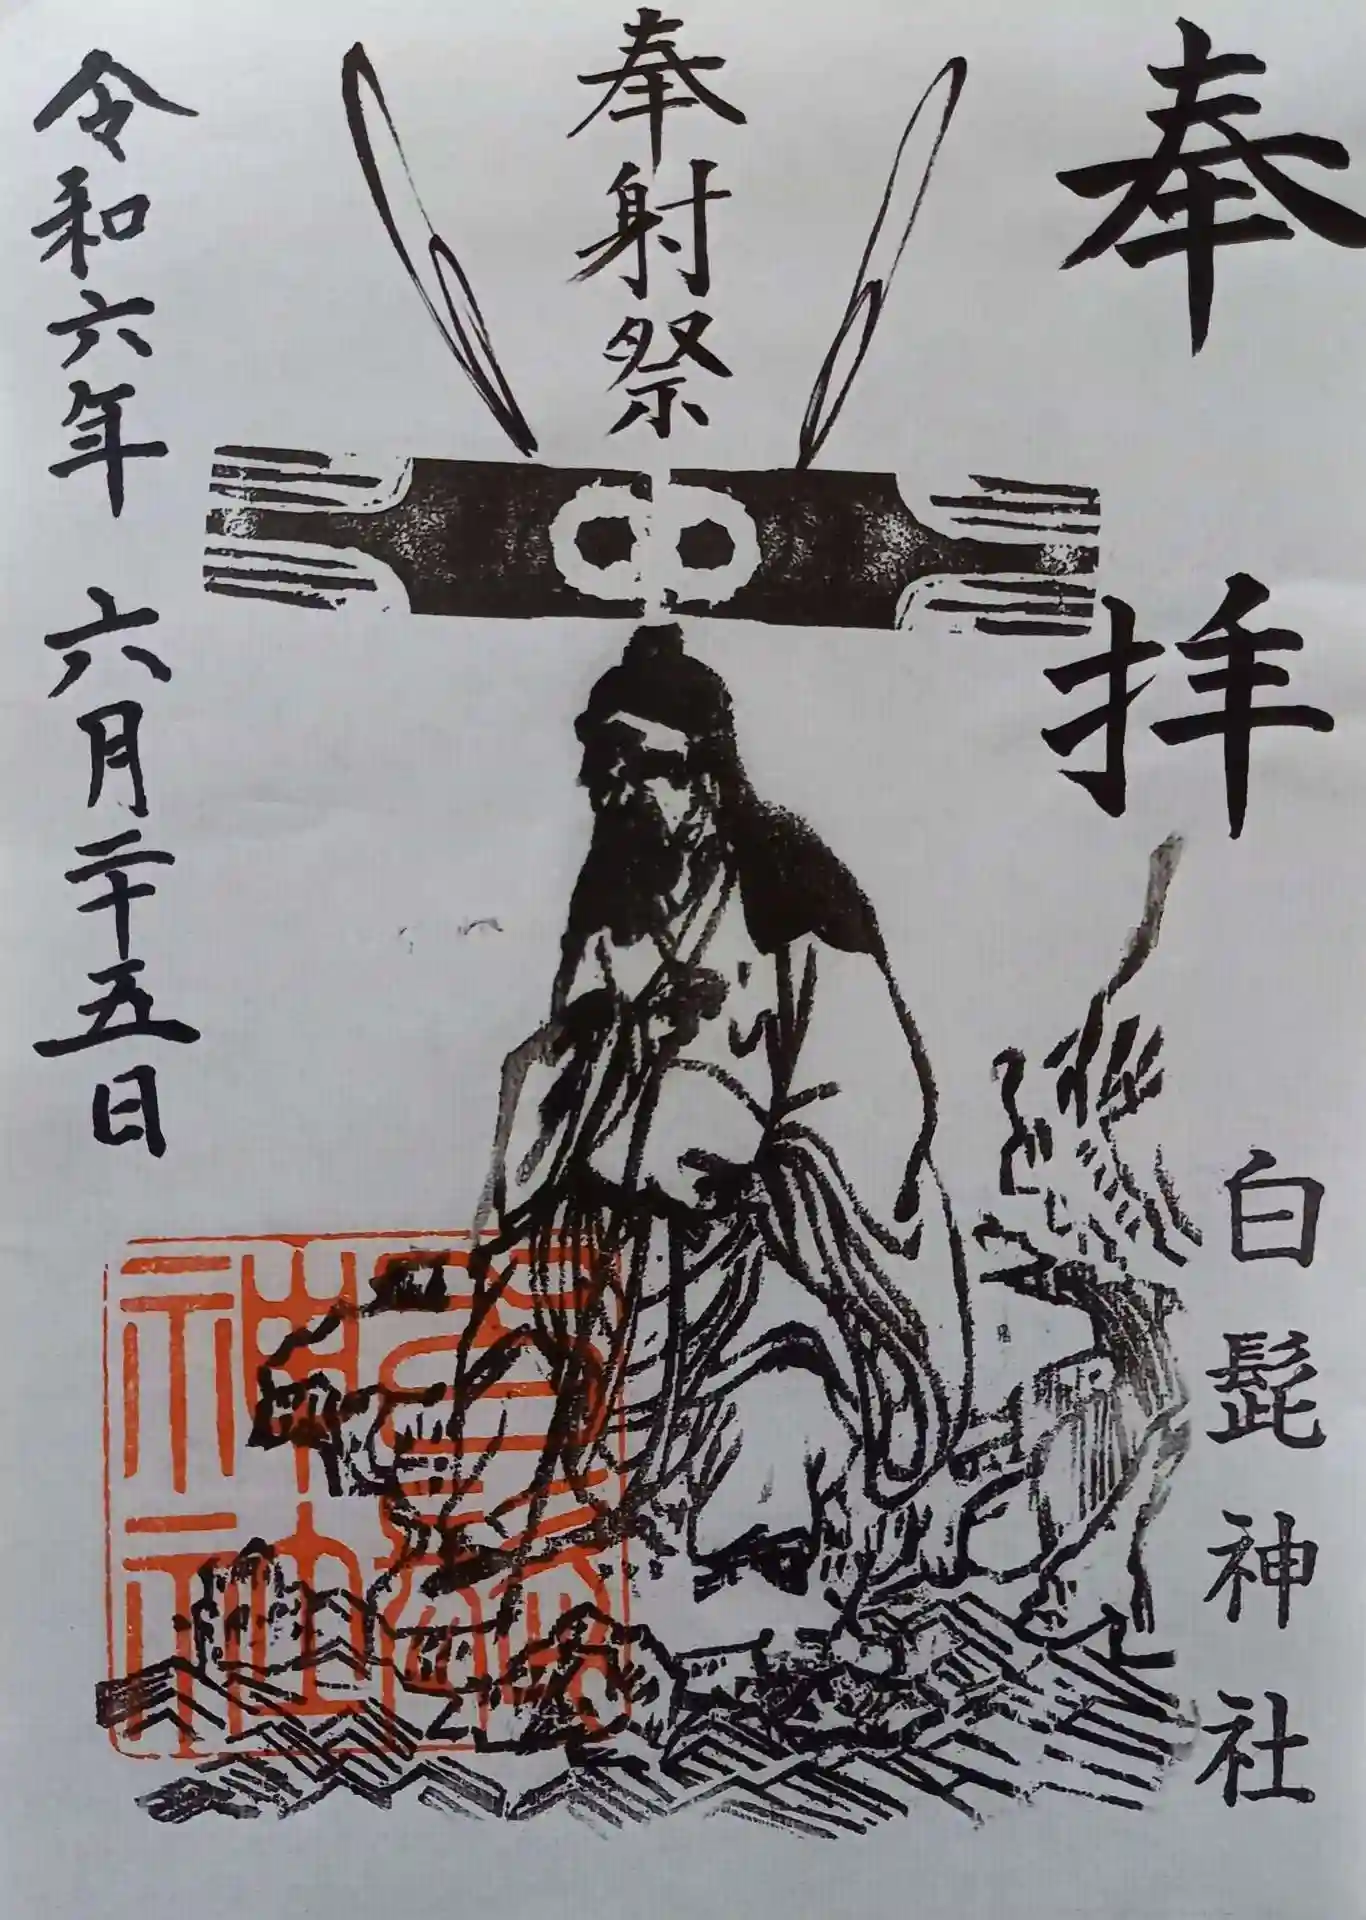 奉拝
白髭神社
奉射祭
令和六年 六月二十五日
白髭
神社